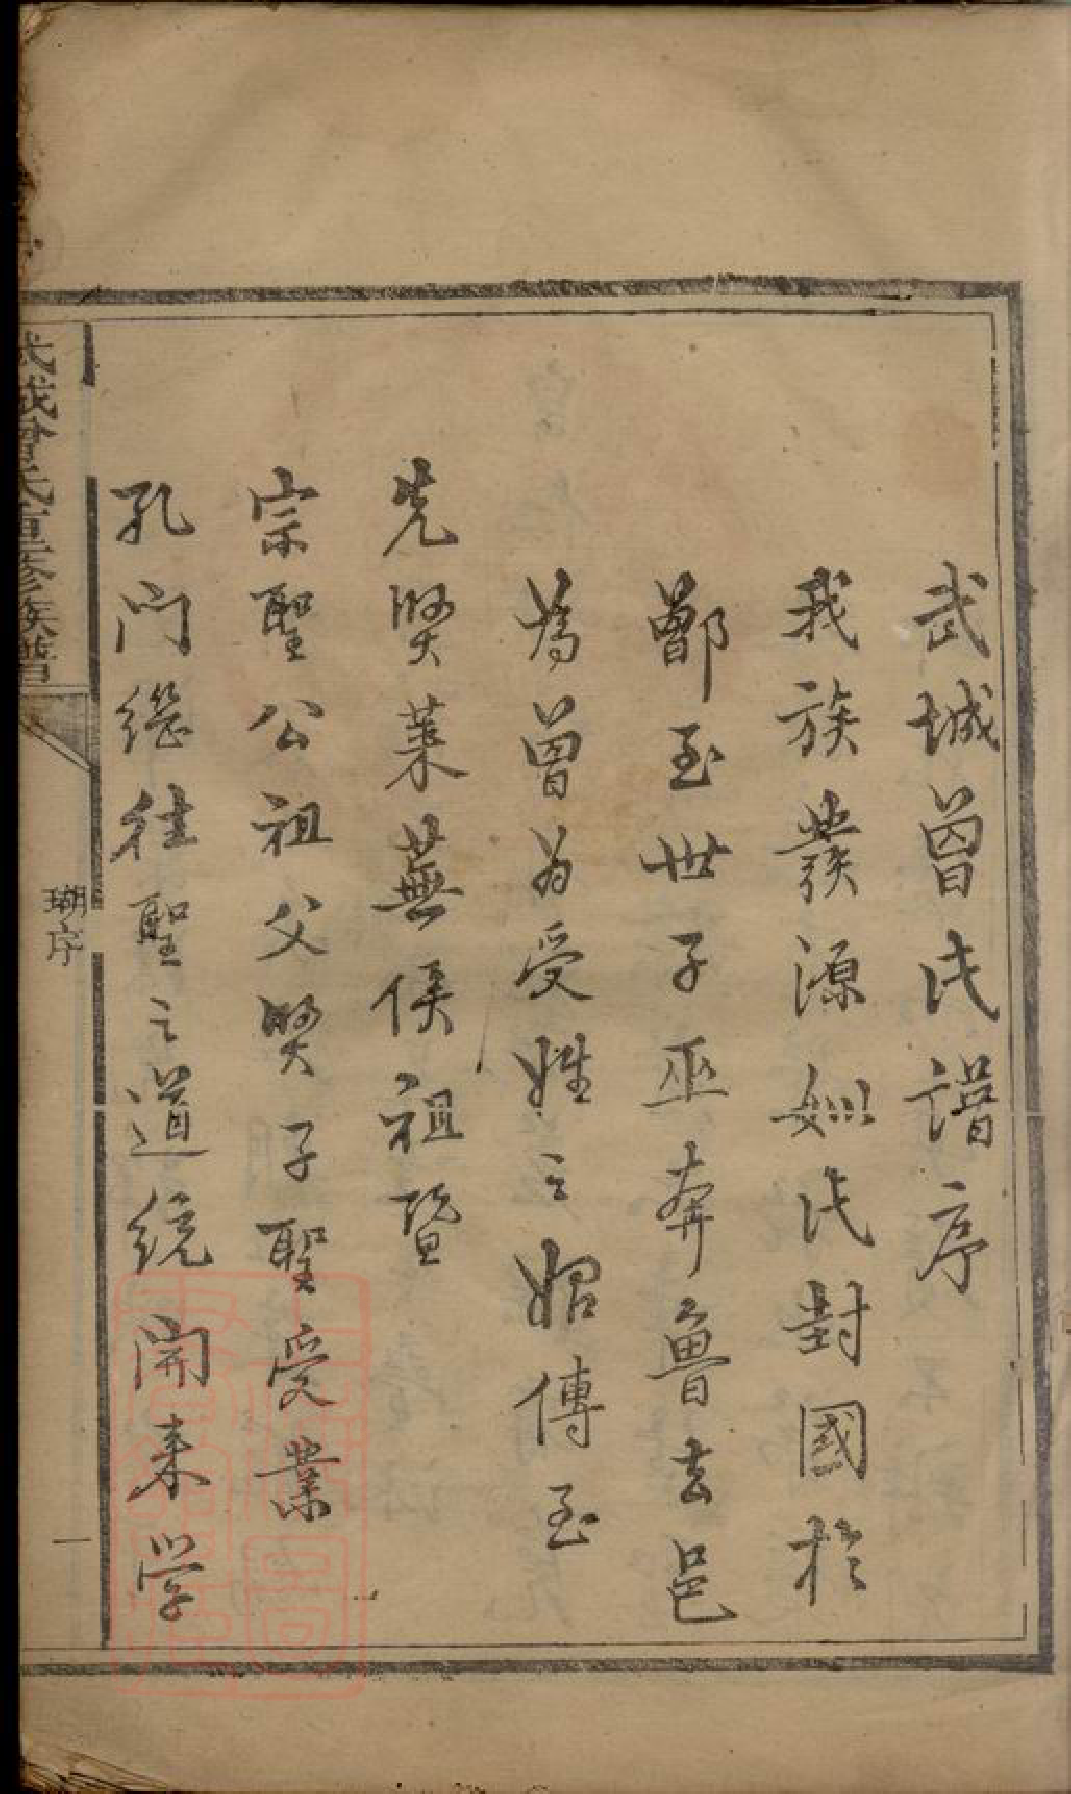 武城曾氏譜序
我族發源姒氏封國於
鄫至世子巫奔魯去邑
為曾為受姓之始傳至
先賢萊蕪侯祖暨
宗聖公祖父賢子聖受業
孔門繼往聖之道統開來學
武城曾氏重修族譜
瑚序
一